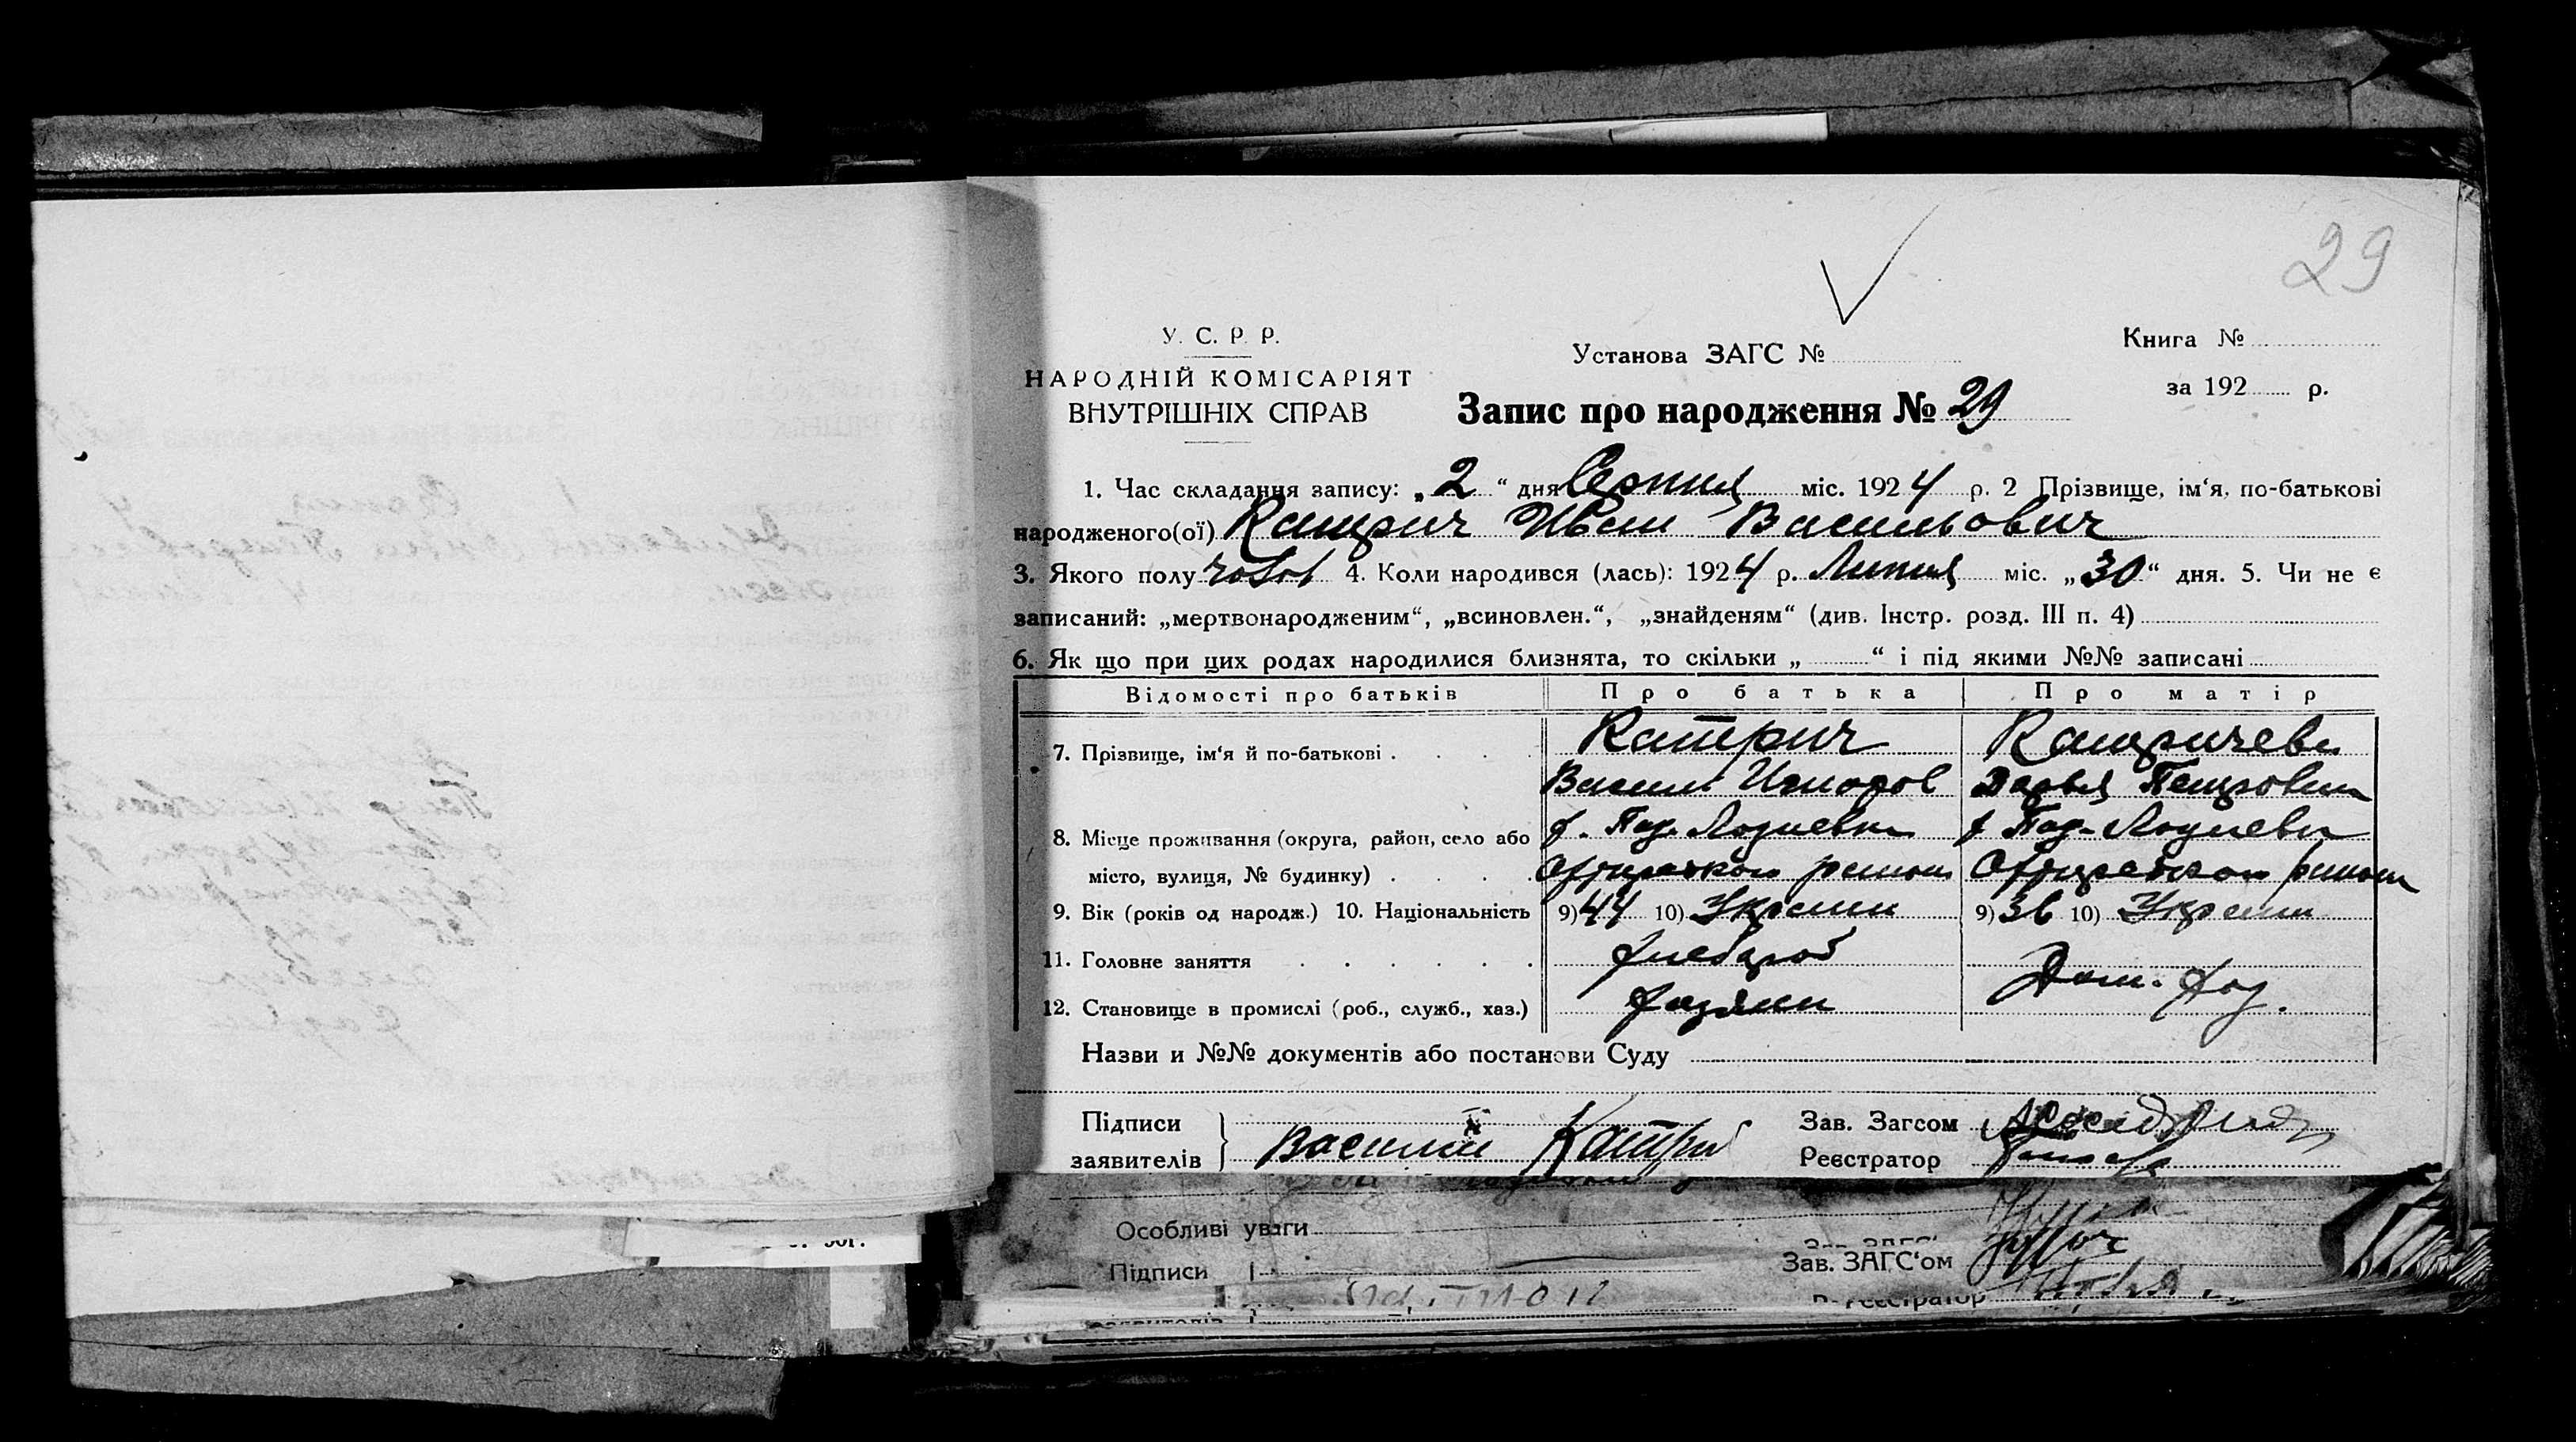 29
У. С. Р. Р.
НАРОДНІЙ КОМІСАРІЯТ
ВНУТРІШНІХ СПРАВ
Установа ЗАГС №
Книга №
за 192 р.
Запис про народження № 29
1. Час складання запису: „2“ дня Серпня міс. 1924 р. 2 Прізвище, ім‘я, по-батькові
народженого(ої) Катрич Иван Васильович
3. Якого полу чолов 4. Коли народився (лась): 1924 р. Липня міс. „30“ дня. 5. Чи не є
записаний: „мертвонародженим“, „всиновлен.“, „знайденям“ (див. Інстр. розд. III п. 4)
6. Як що при цих родах народилися близнята, то скільки „ “ і під якими №№ записані
Відомості про батьків Про батька Про матір
7. Прізвище, ім‘я й по-батькові . Катрич Катричева
Васил Дарья Петровна
8. Місце проживання (округа, район, село або х. Под. х Под.
місто, вулиця, № будинку) .
9. Вік (років од народж.) 10. Національність 9) 44 10) Украин 9) 36 10) Украин
11. Головне заняття хлебароб Дом. хоз.
12. Становище в промислі (роб., служб., хаз.) хазяин
Назви и №№ документів або постанови Суду
Підписи
заявителів Василий Катрич
Зав. Загсом
Реєстратор
Особливі уваги
Підписи
Зав. ЗАГС‘ом
Реєстратор